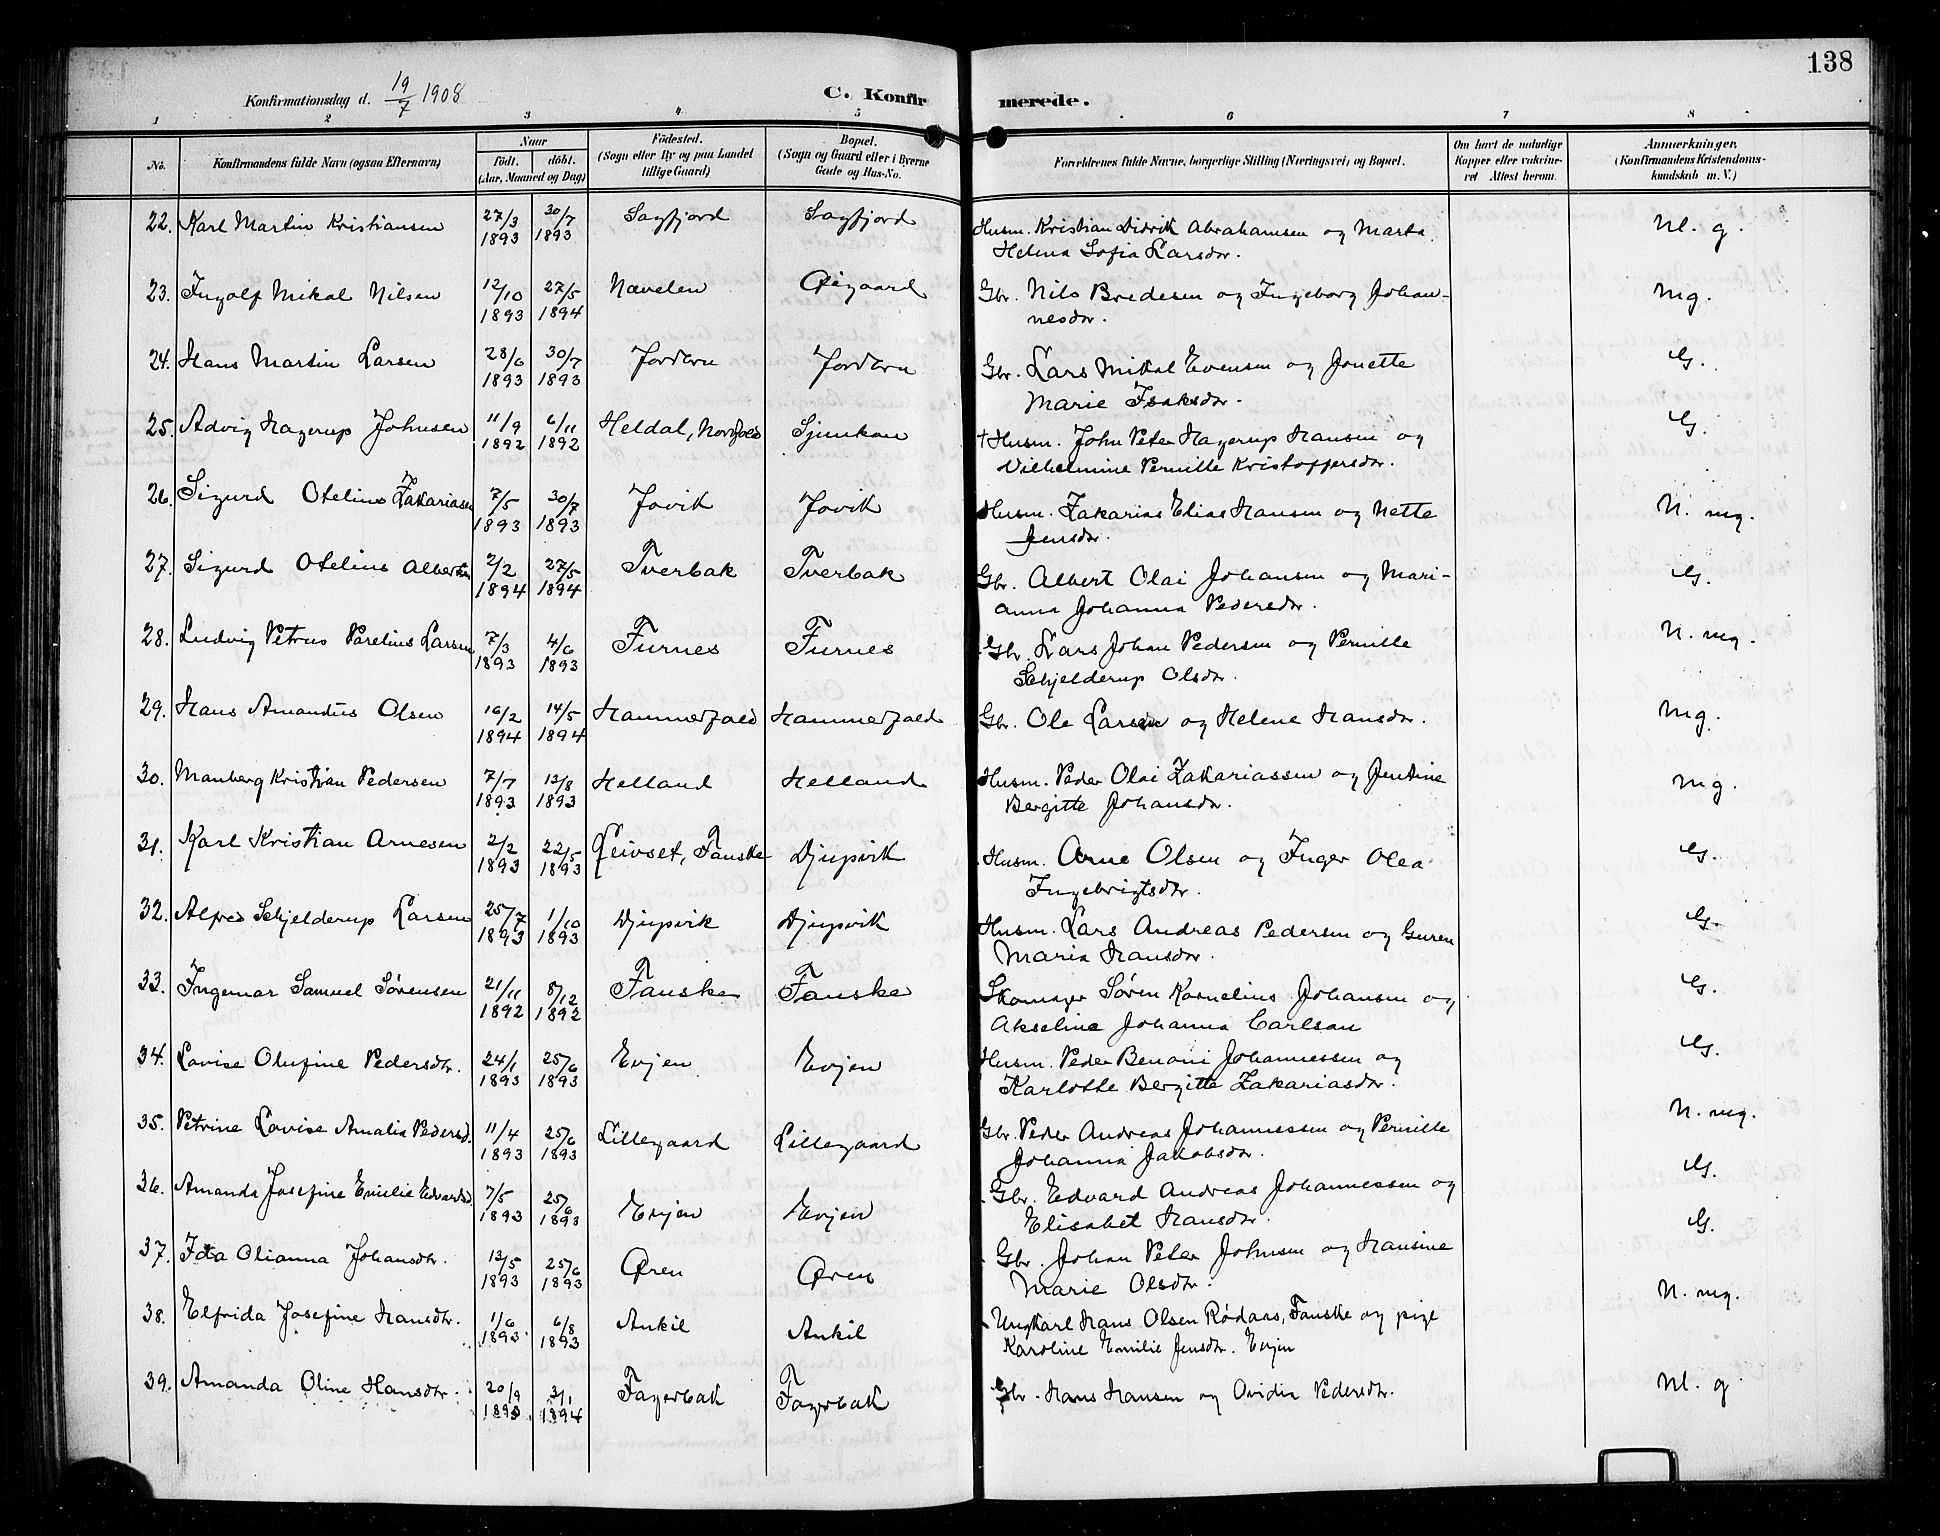 138
Konfirmationsdag d. 19/7 1908
C. Konfirmerede.
1 2 3 4 5 6 7 8
No. | Konfirmandens fulde Navn (ogsaa Efternavn) | Naar født. døbt. (Aar, Maaned og Dag) | Fødested. (Sogn eller By og paa Landet tillige Gaard) | Bopæl. (Sogn og Gaard eller i Byerne Gade og Hus-No. | Forældrenes fulde Navne, borgerlige Stilling (Næringsvei) og Bopæl. | Om havt de naturlige Kopper eller vaccineret Attest herom. | Anmerkninger. (Konfirmandens Kristendomskundskab m. V.)
22. Karl Martin Kristiansen | 27/3 1893 | 30/7 1893 | Sagfjord | Sagfjord | Husm. Kristian Didrik Abrahamsen og Marta | Nl. g.
Helena Sofia Larsdtr.
23. Ingolf Mikal Nilsen | 12/10 1893 | 27/5 1894 | Nævelen | Øigaard | Gbr. Nils Bredesen og Ingeborg Johan- | Mg.
nesdtr.
24. Hans Martin Larsen | 28/6 1893 | 30/7 1893 | Jordbru | Jordbru | Gbr. Lars Mikal Evensen og Jonette | G.
Marie Isaksdtr.
25. Advig Hagerup Johnsen | 11/9 1892 | 6/11 1892 | Heldal, Nordfold | Sjunkan | † Husm. John Peter Hagerup Hansen og | G.
Vilhelmine Pernille Kristoffersdtr.
26. Sigurd Otelius Zakariasen | 7/5 1893 | 30/7 1893 | Jovik | Jovik | Husm. Zakarias Elias Hansen og Nette | N. mg.
Jensdtr.
27. Sigurd Otelius Albertsen | 2/2 1894 | 27/5 1894 | Tverbak | Tverbak | Gbr. Albert Olai Johansen og Mari- | G.
anna Johanna Pedersdtr.
28. Ludvig Petrus Parelius Larsen | 7/3 1893 | 4/6 1893 | Furnes | Furnes | Gbr. Lars Johan Pedersen og Pernille | N. mg.
Schjelderup Olsdtr.
29. Hans Amandus Olsen | 16/2 1894 | 14/5 1894 | Hammerfald | Hammerfald | Gbr. Ole Larsen og Helene Hansdtr. | Mg.
30. Manberg Kristian Pedersen | 7/7 1893 | 13/8 1893 | Helland | Helland | Husm. Peder Olai Zakariassen og Jentine | Mg.
Bergitte Johansdtr.
31. Karl Kristian Arnesen | 2/2 1893 | 22/5 1893 | Leivset, Fauske | Djupvik | Husm. Arne Olsen og Inger Olea | G.
Ingebrigtsdtr.
32. Alfred Schjelderup Larsen | 25/7 1893 | 1/10 1893 | Djupvik | Djupvik | Husm. Lars Andreas Pedersen og Guren | G.
Maria Hansdtr.
33. Ingemar Samuel Sørensen | 21/11 1892 | 8/12 1892 | Fauske | Fauske | Skomager Søren Kornelius Johansen og | G.
Akseline Johanna Carlson
34. Lovise Olufine Pedersdtr. | 24/1 1893 | 25/6 1893 | Evjen | Evjen | Husm. Peder Benoni Johannessen og | G.
Karlotte Bergitte Zakariasdtr.
35. Petrine Lovise Amalia Pedersd. | 11/4 1893 | 25/6 1893 | Lillegaard | Lillegaard | Gbr. Peder Andreas Johannessen og Pernille | N. mg.
Johanna Jakobsdtr.
36. Amanda Josefine Emilie Edvardsd. | 7/5 1893 | 25/6 1893 | Evjen | Evjen | Gbr. Edvard Andreas Johannessen og | G.
Elisabet Hansdtr.
37. Ida Olianna Johansdtr. | 13/5 1893 | 25/6 1893 | Øren | Øren | Gbr. Johan Peter Johnsen og Hansine | G.
Marie Olsdtr.
38. Elfrida Josefine Hansdtr. | 1/6 1893 | 6/8 1893 | Ankil | Ankil | Ungkarl Hans Olsen Rødaas, Fauske og pige | N. mg.
Karoline Emilie Jensdtr. Evjen
39. Amanda Oline Hansdtr. | 20/9 1893 | 3/1 1894 | Fagerbak | Fagerbak | Gbr. Hans Hansen og Ovidia Pedersdtr. | Nl. g